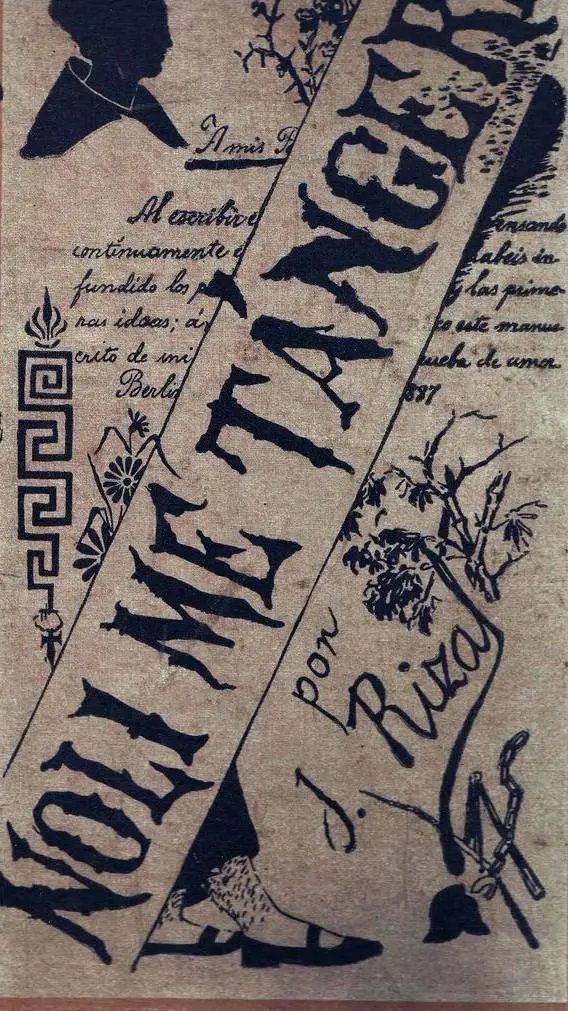 A mis P
Al escribir e ensando
continuamente e abeis in-
fundido los p y las prime-
ras ideas; á co este manus
crito de mi rueba de amor.
Berlin 887
NOLI ME TANGERE
por
J. Rizal